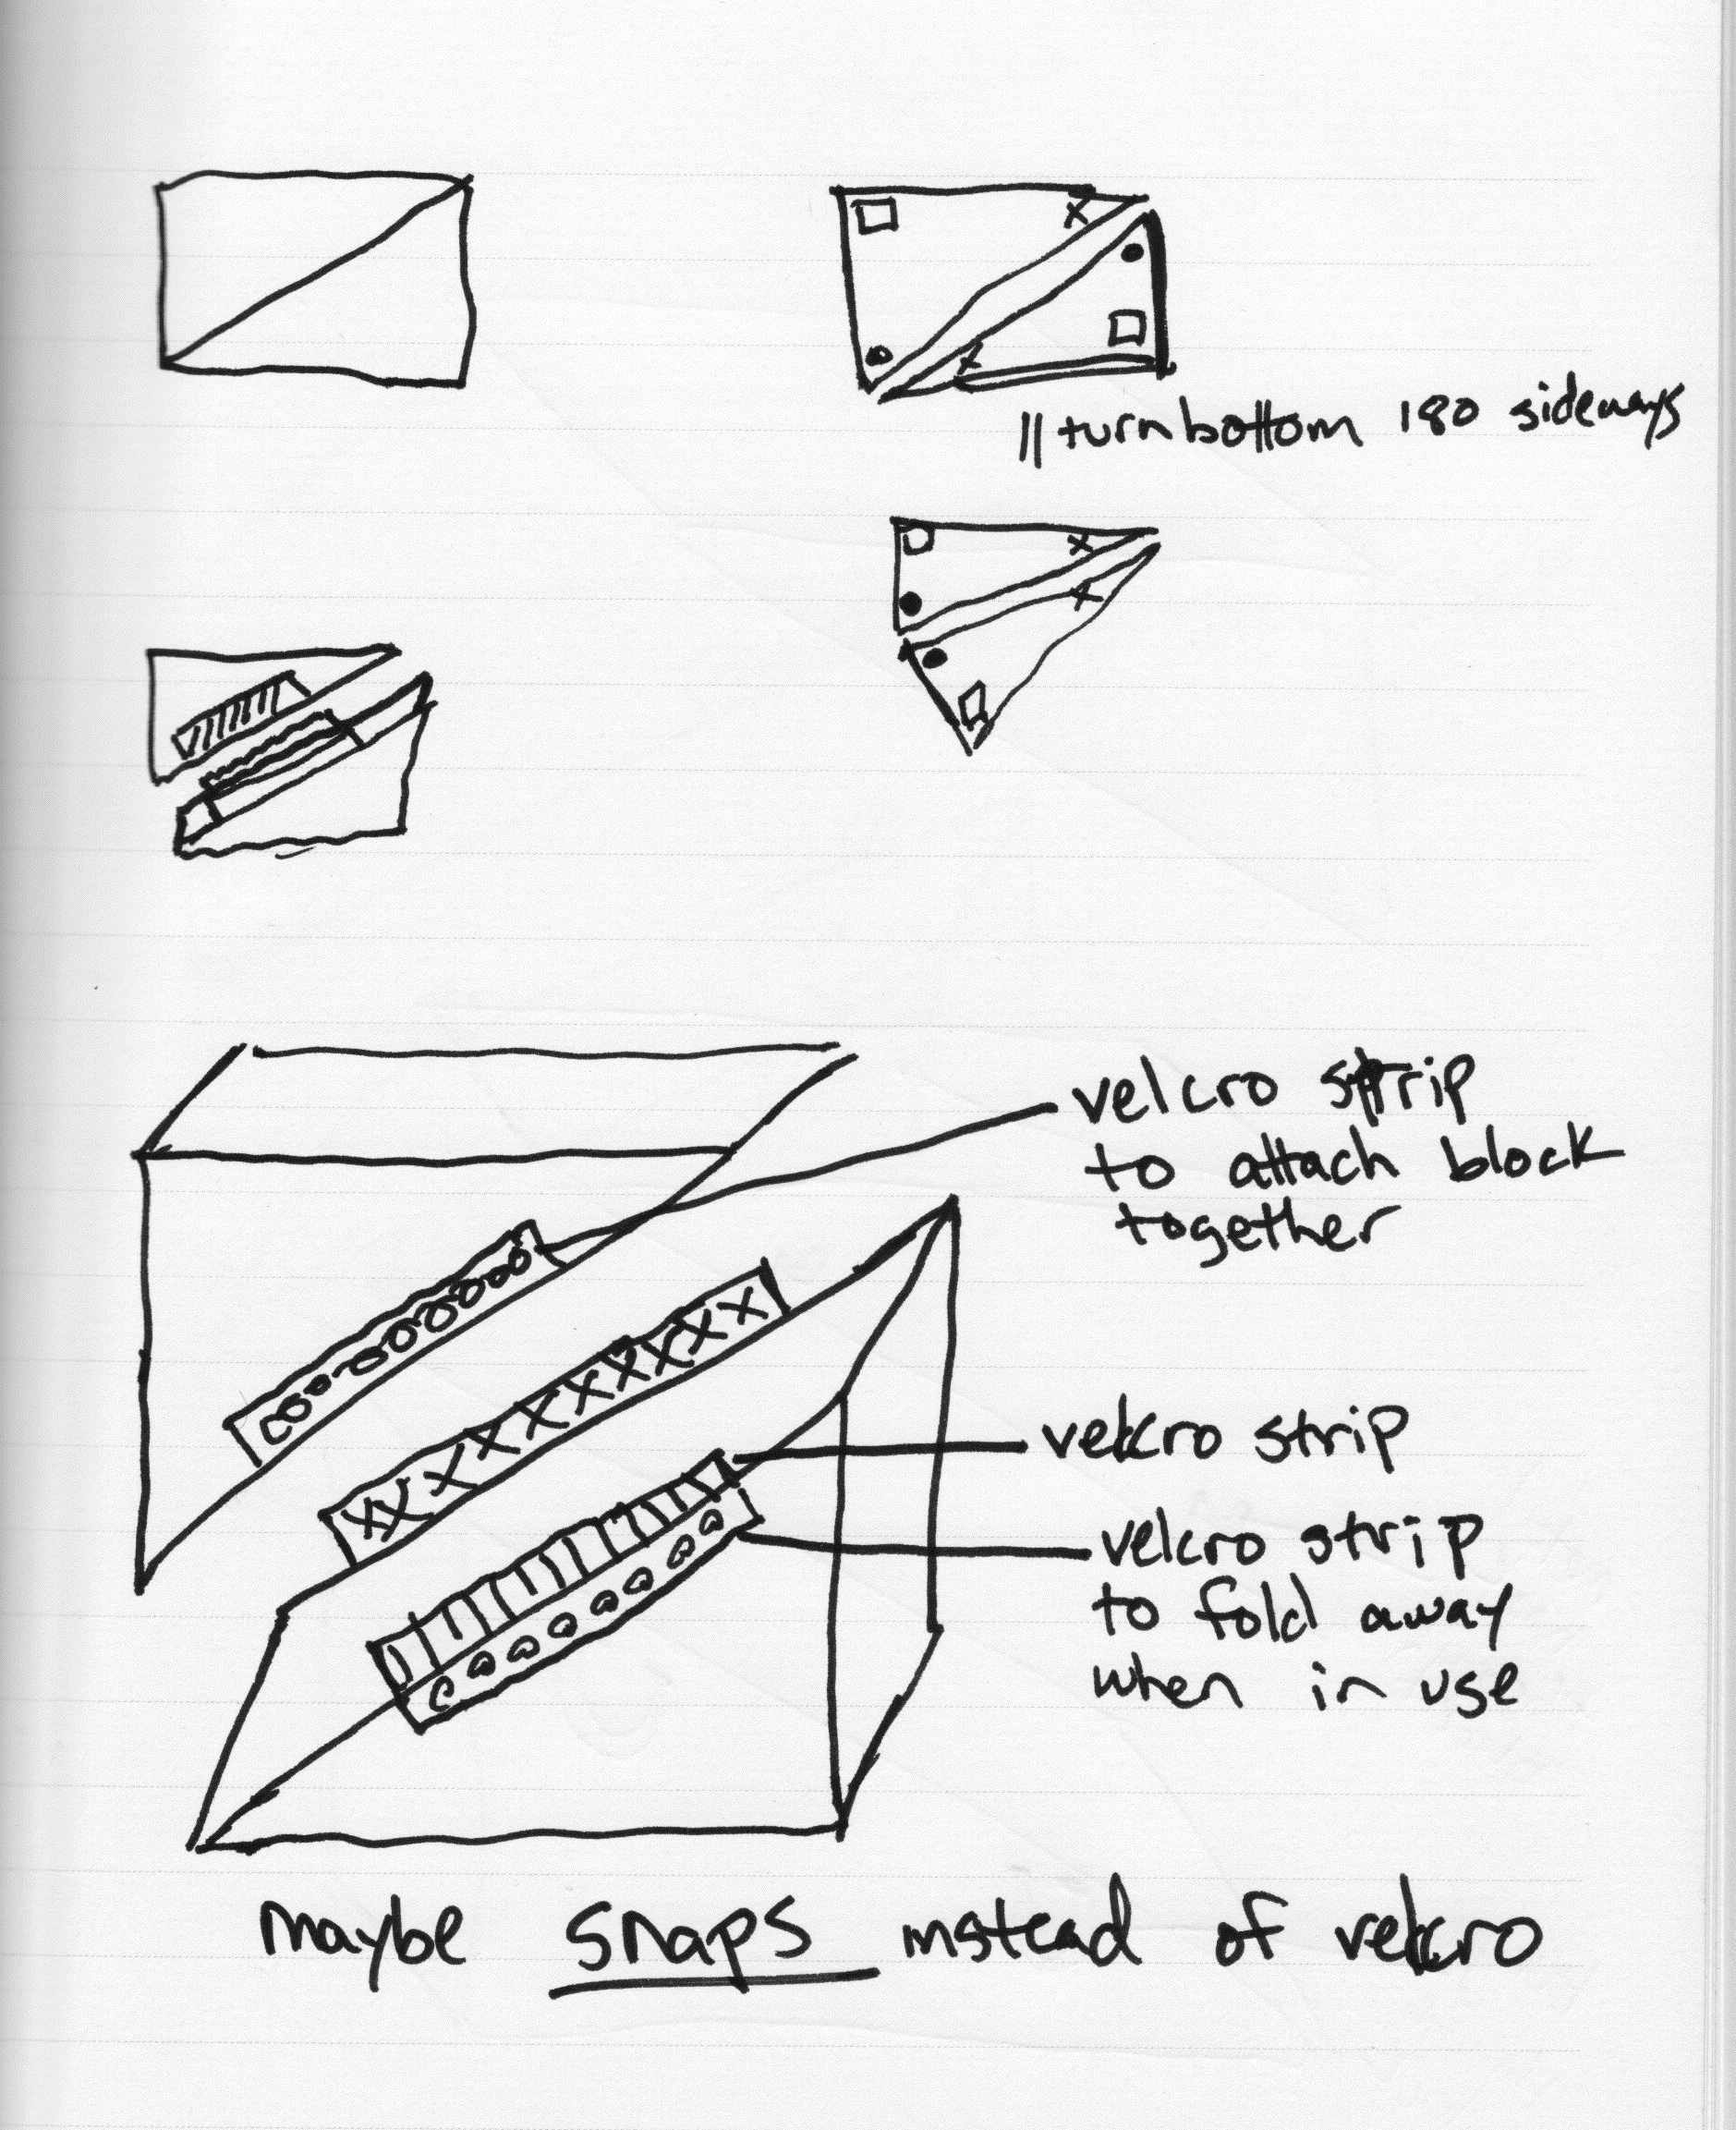 // turn bottom 180 sideways
velcro strip
to attach block
together
velcro strip
velcro strip
to fold away
when in use
maybe snaps instead of velcro